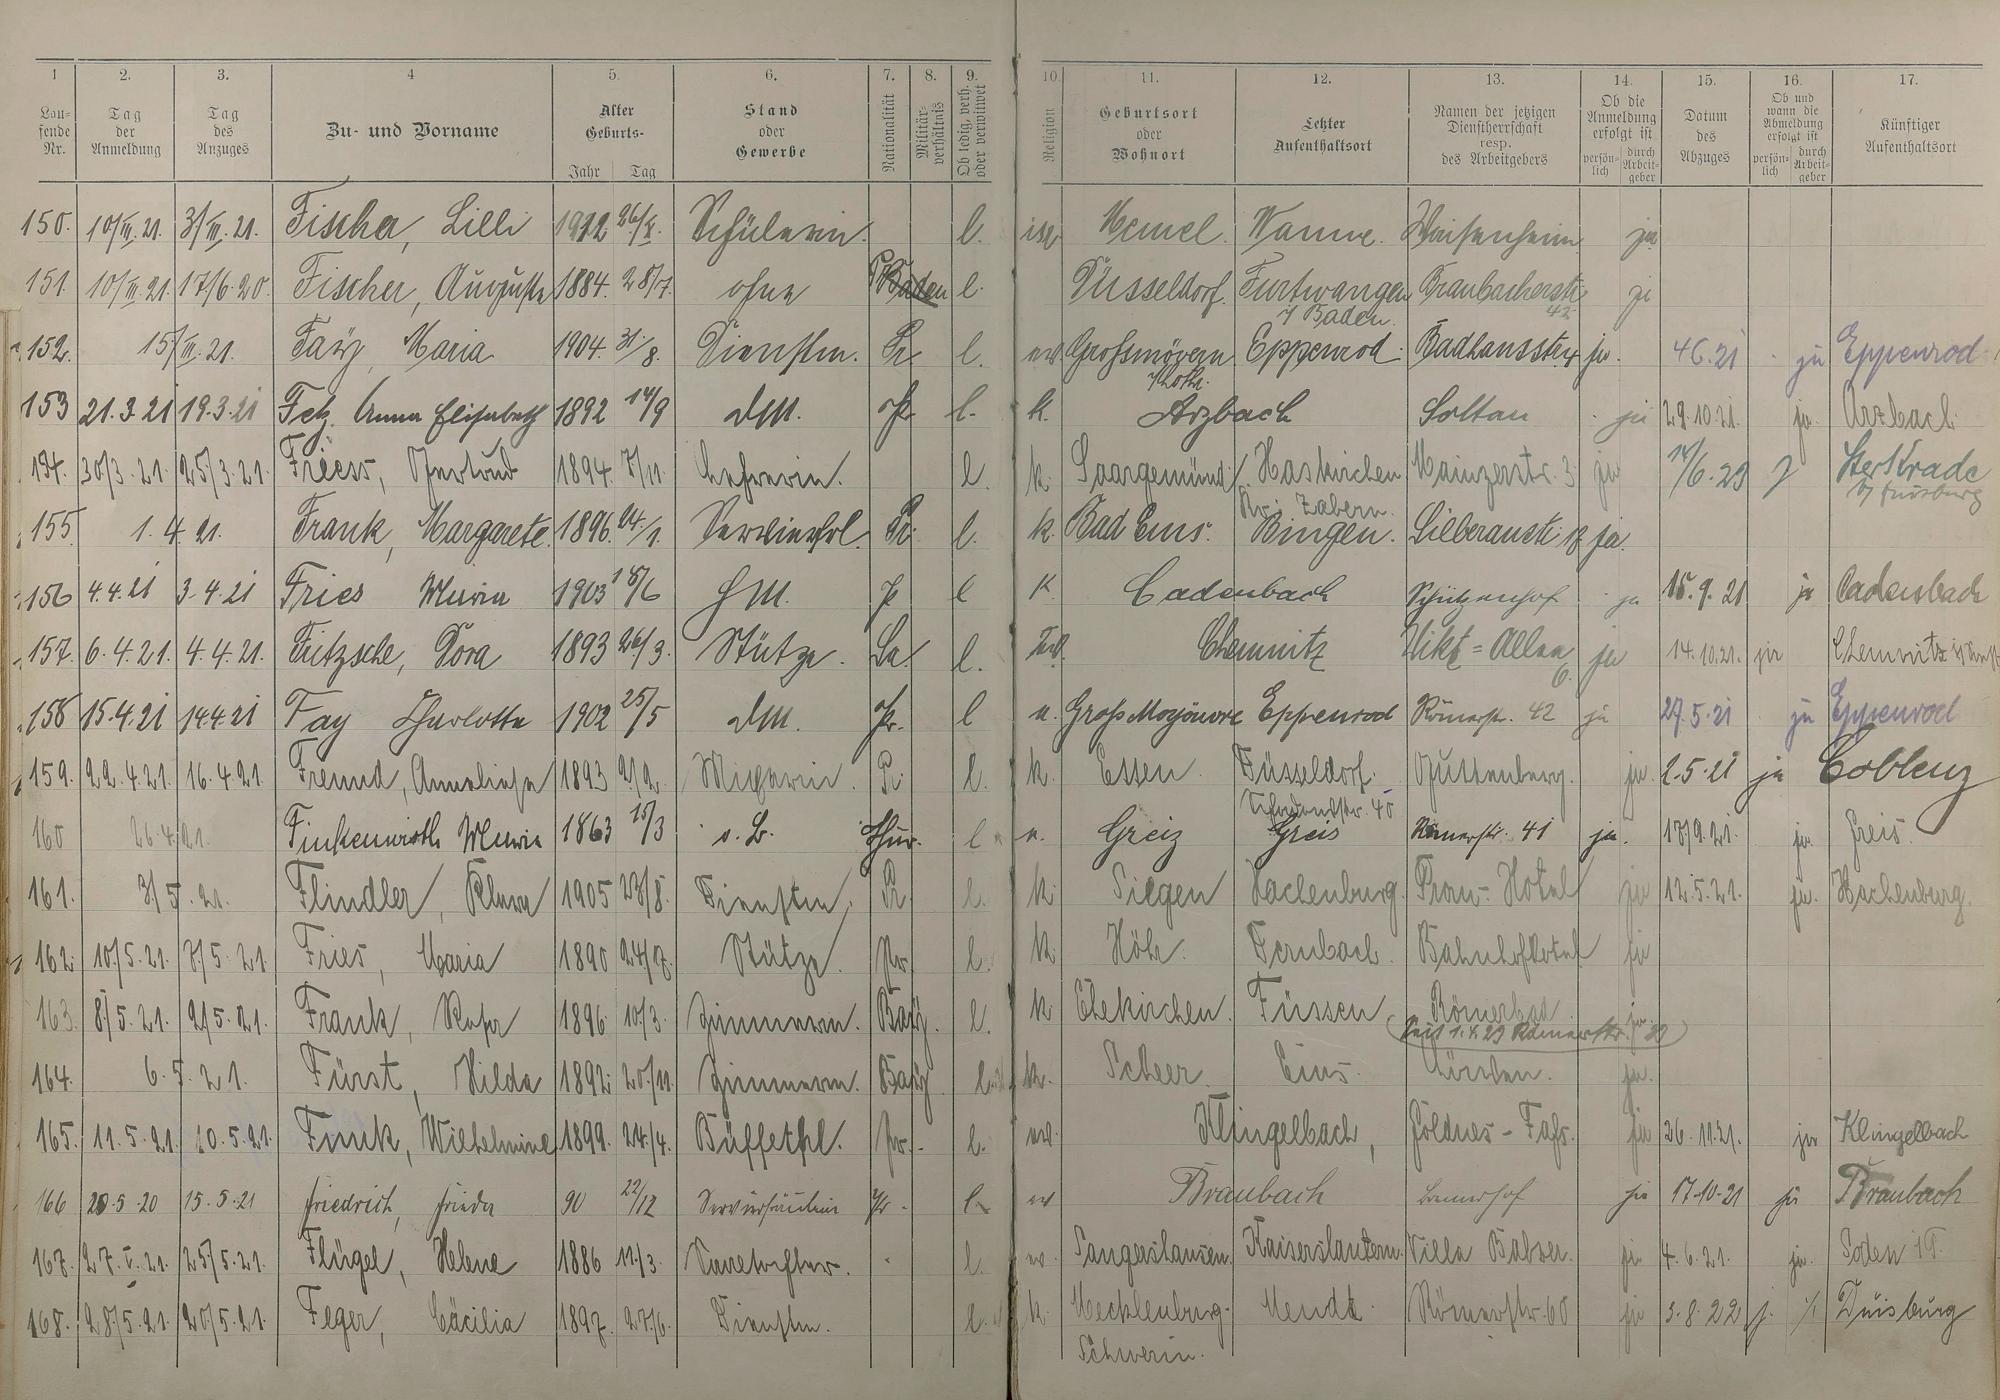 1 2. 3. 4 5. 6. 7. 8. 9. 10. 11. 12. 13. 14. 15. 16. 17.
Lau-fende Nr. Tag der Anmeldung Tag des Anzuges Zu- und Vorname Alter Geburts- Jahr Tag Stand oder Gewerbe Nationalität Militär-verhältnis Ob ledig, verh. oder verwitwet Religion Geburtsort oder Wohnort Letzter Aufenthaltsort Namen der jetzigen Dienstherrschaft resp. des Arbeitgebers Ob die Anmeldung erfolgt ist persön-lich durch Arbeit-geber Datum des Abzuges Ob und wann die Abmeldung erfolgt ist persön-lich durch Arbeit-geber Künftiger Aufenthaltsort
150. 10/III. 21. 3/III. 21. Fischer, Lilli 1912 26/X. Schülerin. l. isr Memel. Wanne. Waisenheim ja
151. 10/III. 21. 17/6. 20. Fischer, Auguste 1884. 28/7. ohne Baden l. Düsseldorf. Furtwangen Braubacherstr. ja
i/ Baden. 42
152. 15/III. 21. Maria 1904. 31/8. Dienstm. Pr. l. ev. Grossmövern Eppenrod. Badhausstr. 4 ja. 4.6.21 ja Eppenrod
i/Lothr.
153 21. 3. 21 19. 3. 21 Fetz. Anna Elisabeth 1892 14/9 dM. Pr. l. k. Arzbach Soltau ja 29. 10. 21. ja Arzbach
154. 30/3. 21. 25/3. 21. Friess, Gertrud 1894. 7/11. Lehrerin. l. k. Saargemünd Haskirchen Mainzerstr. 3 ja 14/6. 23 j Sterkrade
Kr. Zabern. b/ Duisburg
155. 1. 4. 21. Frank, Margarete. 1896. 24/1. Servierfrl. Pr. l. k. Bad Ems. Bingen. Silberaustr. 18 ja.
156 4. 4. 21 3. 4. 21 Fries Maria 1903 18/6 HM. P l K. Cadenbach Schützenhof ja 15. 9. 21 ja Cadenbach
157. 6. 4. 21. 4. 4. 21. Fritzsche, Dora 1893 26/3. Stütze. Sa. l. Chemnitz Vikt = Allee 6. ja 14. 10. 21. ja Chemnitz
158 15. 4. 21 14. 4. 21 Fay Charlotte 1902 25/5 dM. Pr. l e. Gross Moyeuvre Eppenrod Römerstr. 42 ja 27. 5. 21 ja Eppenrod
159. 22. 4. 21. 16. 4. 21. Freund, Anneliese 1893 2/2. Pr. l. k. Essen. Düsseldorf. Guttenberg. ja. 2. 5. 21 ja Coblenz
160 26. 4. 21. Finkenwirth Maria 1863 15/3 o. B. Thür. l e. Greiz Greis Römerstr. 41 ja. 17/9. 21. ja. Greis.
161. 3/5. 21. Flindler, 1905 23/8. Dienstm. Pr. l. k. Siegen Hachenburg. Prau- Hotel ja 12. 5. 21. ja. Hachenburg.
162. 10/5. 21. 7/5. 21. Fries, Maria 1890 24/7. Stütze. Pr. l. k. Höhr. Dernbach. Bahnhofhotel ja
163. 8/5. 21. 2/5. 21. Frank, Rosa 1896. 10/3. Zimmerm. Bay. l. k. Ehekirchen. Füssen Römerbad ja
(seit 1. 4. 23 Römerstr. 29)
164. 6. 5. 21. Fürst, Hilda 1892. 20/11. Zimmerm. Bay l. k. Scheer. Ems. ja.
165. 11. 5. 21. 10. 5. 21. Funk, Wilhelmine 1899. 24/4. Büffetfrl. Pr. l. ev. Klingelbach, Goldnes - Fass. ja 26. 11. 21. ja Klingelbach
166 20. 5. 20 15. 5. 21 Friedrich, Frieda 90 22/12 Servierfräulein Pr. l. ev Braubach ja 17. 10. 21 ja Braubach
167. 27. V. 21. 25/5. 21. Flügel, Helene 1886 11/3. l. ev. Sangershausen. Kaiserslautern. Villa Balzer. ja 4. 6. 21. ja. Soden
168. 28/5. 21. 20/5. 21. Feger, Cäcilia 1897. 27/6. Dienstm. l. k. Mecklenburg- Mendt. Römerstr. 60 ja 3. 8. 22 j. Duisburg
Schwerin.